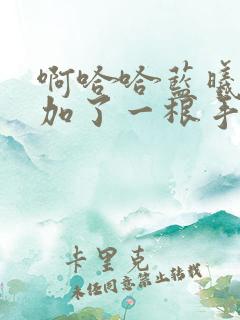 啊哈哈蓝曦
加了一根手
卡里克
未经同意禁止转载